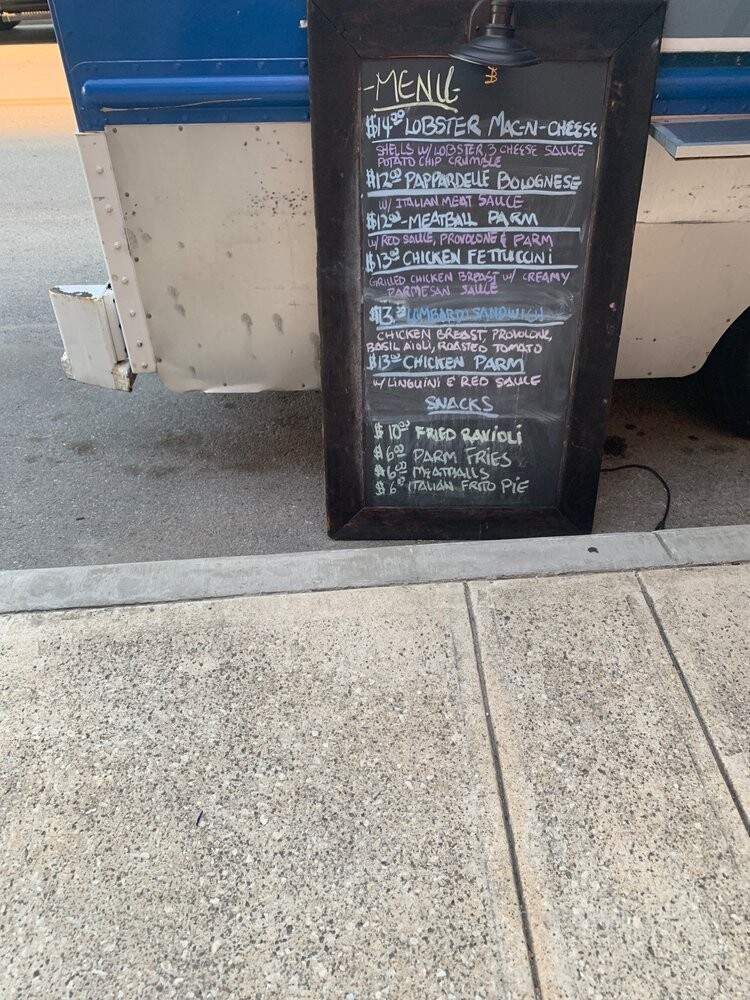 -MENU
$14.00 LOBSTER MAC-N-CHEESE
SHELLS W/ LOBSTER, 3 CHEESE SAUCE
POTATO CHIP CRUMBLE
$12.00 PAPPARDELLE BOLOGNESE
W/ ITALIAN MEAT SAUCE
$12.00-MEATBALL PARM
W/ RED SAUCE, PROVOLONE & PARM
$13.00 CHICKEN FETTUCCINI
GRILLED CHICKEN BREAST W/ CREAMY
PARMESAN SAUCE
$13.00 LOMBARD SANDWICH
CHICKEN BREAST, PROVOLONE,
BASIL AIOLI, ROASTED TOMATO
$13.00 CHICKEN PARM
W/ LINGUINI & RED SAUCE
SNACKS
$10.00 FRIED RAVIOLI
$6.00 PARM FRIES
$6.00 MEATBALLS
$6.00 ITALIAN FRITO PIE